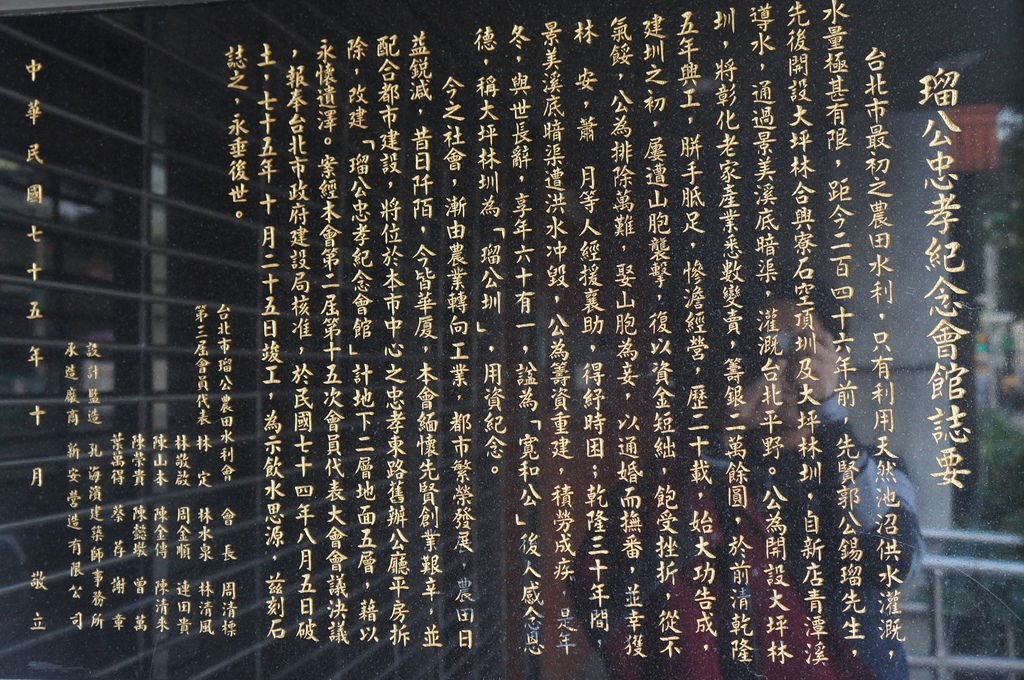 瑠公忠孝紀念會館誌要
台北市最初之農田水利，只有利用天然池沼供水灌溉，
水量極甚有限，距今二百四十六年前，先賢郭公錫瑠先生，
先後開設大坪林合興寮石空頂圳及大坪林圳，自新店青潭溪
導水，通過景美溪底暗渠，灌溉台北平野。公為開設大坪林
圳，將彰化老家產業悉數變責，籌銀二萬餘圓，於前清乾隆
五年興工，胼手胝足，慘澹經營，歷二十載，始大功告成，
建圳之初，屢遭山胞襲擊，復以資金短絀，飽受挫折，從不
氣餒，公為排除萬難，娶山胞為妾，以通婚而撫番，並幸獲
林 安，蕭 月等人經援襄助，得紓時困；乾隆三十年間，
景美溪底暗渠遭洪水冲毀，公為籌資重建，積勞成疾，是年
冬，與世長辭，享年六十有一，謚為「寬和公」後人感念恩
德，稱大坪林圳為「瑠公圳」，用資紀念。
今之社會，漸由農業轉向工業，都市繁榮發展，農田日
益銳減，昔日阡陌，今皆華厦，本會緬懷先賢創業艱辛，並
配合都市建設，將位於本市中心之忠孝東路舊辦公廳平房拆
除，改建「瑠公忠孝紀念會館」計地下二層地面五層，藉以
永懷遺澤。案經本會第二屆第十五次會員代表大會會議決議
，報奉台北市政府建設局核准，於民國七十四年八月五日破
土，七十五年十月二十五日竣工，為示飲水思源，茲刻石
誌之，永垂後世。
台北市瑠公農田水利會 會長 周清標
第三屆會員代表 林 定 林水泉 林清風
林敬啟 周金順 連田貴
陳山本 陳金傳 陳清來
陳榮貴 陳懿墩 曾 萬
黃萬得 蔡 荐 謝 章
設計監造 孔海濱建築師事務所
承造廠商 新安營造有限公司
中華民國七十五年十月 敬立